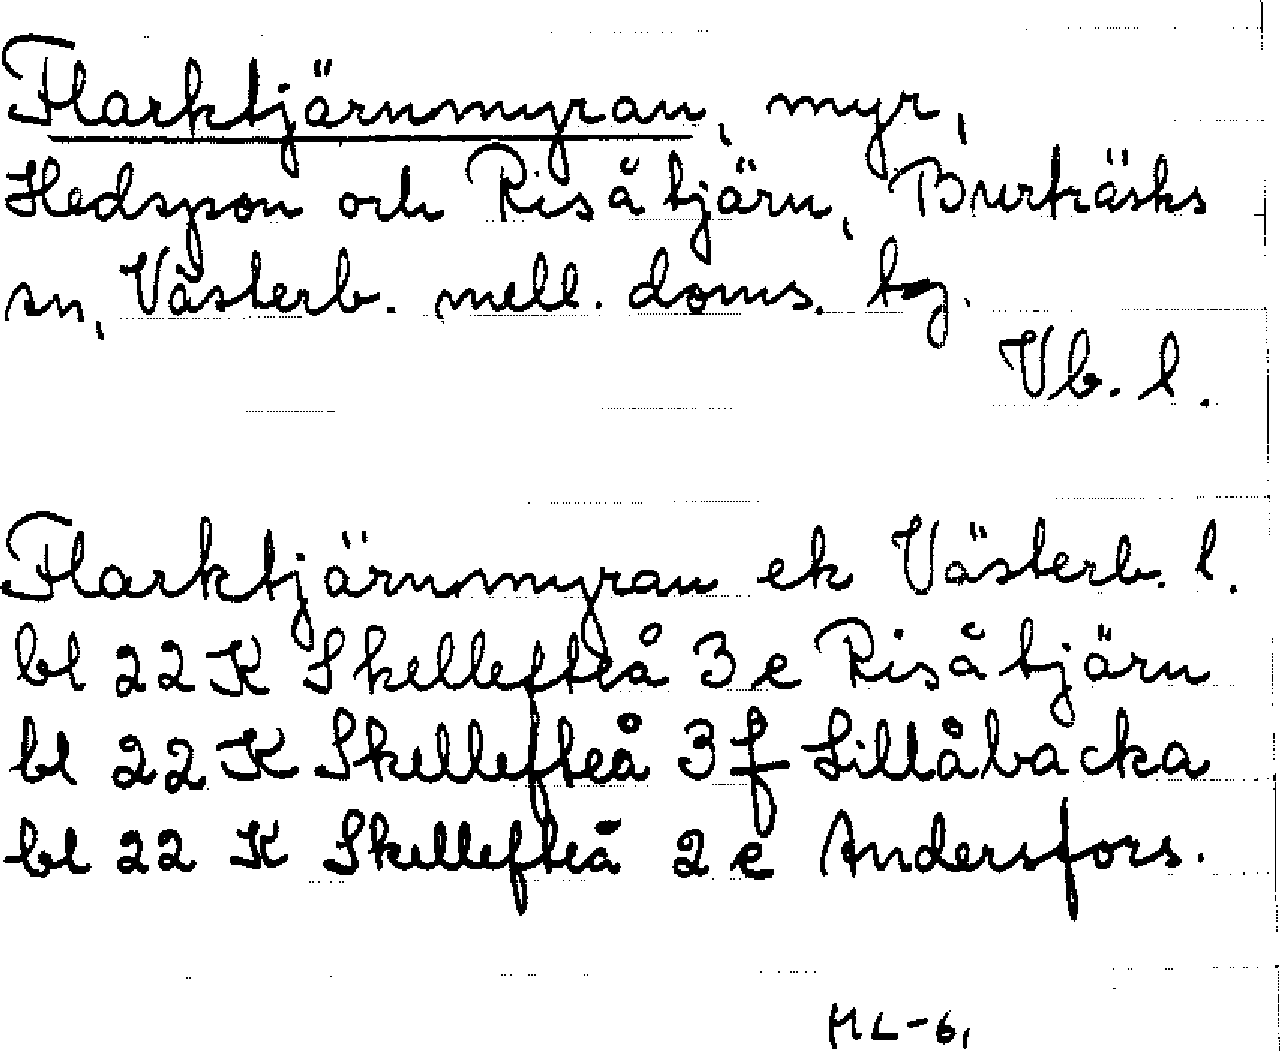 Flarktjärnmyran, myr,
Hedspon och Risåtjärn, Burträsks
sn, Västerb. mell. doms. tg.
Vb. l.
Flarktjärnmyran ek Västerb. l.
bl 22 K Skellefteå 3 e Risåtjärn
bl 22 K Skellefteå 3 f Lillåbacka
bl 22 K Skellefteå 2 e Andersfors.